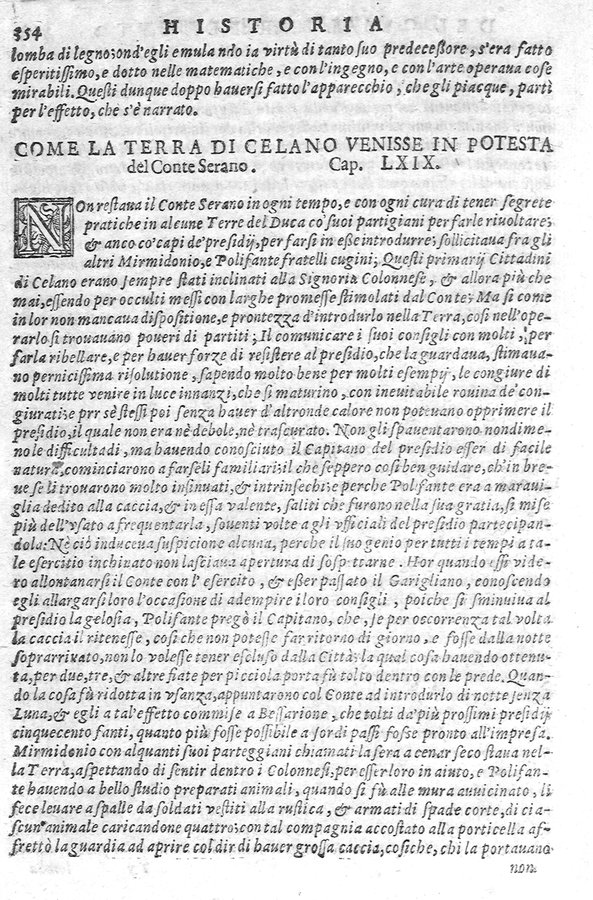 354 HISTORIA
lomba di legno; ond'egli emulando la virtù di tanto suo predecessore, s'era fatto
esperitissimo, e dotto nelle matematiche, e con l'ingegno, e con l'arte operaua cose
mirabili. Questi dunque doppo hauersi fatto l'apparecchio, che gli piacque, partì
per l'effetto, che s'è narrato.
COME LA TERRA DI CELANO VENISSE IN POTESTA
del Conte Serano. Cap. LXIX.
NOn restaua il Conte Serano in ogni tempo, e con ogni cura di tener segrete
pratiche in alcune Terre del Duca co' suoi partigiani per farle riuoltare;
& anco co' capi de' presidij, per farsi in esse introdurre; sollicitaua fra gli
altri Mirmidonio, e Polifante fratelli cugini; Questi primarij Cittadini
di Celano erano sempre stati inclinati alla Signoria Colonnese, & allora più che
mai, essendo per occulti messi con larghe promesse stimolati dal Conte: Ma si come
in lor non mancaua dispositione, e prontezza d'introdurlo nella Terra, così nell'ope-
rarlo si trouauano poueri di partiti; Il comunicare i suoi consigli con molti, per
farla ribellare, e per hauer forze di resistere al presidio, che la guardaua, stimaua-
no perniciissima risolutione, sapendo molto bene per molti esempij, le congiure di
molti tutte venire in luce innanzi, che si maturino, con ineuitabile rouina de' con-
giurati: e prr sè stessi poi senza hauer d'altronde calore non poteuano opprimere il
presidio, il quale non era nè debole, nè trascurato. Non gli spauentarono nondime-
no le difficultadi, ma hauendo conosciuto il Capitano del presidio esser di facile
natura, cominciarono a farseli familiari: il che seppero così ben guidare, ch'in bre-
ue se li trouarono molto insinuati, & intrinsechi: e perche Polifante era a maraui-
glia dedito alla caccia, & in essa valente, saliti che furono nella sua gratia, si mise
più dell'vsato a frequentarla, souenti volte a gli vfficiali del presidio partecipan-
dola: Nè ciò induceua suspicione alcuna, perche il suo genio per tutti i tempi a ta-
le esercitio inchinato non lasciaua apertura di sospettarne. Hor quando essi vide-
ro allontanarsi il Conte con l'esercito, & esser passato il Garigliano, conoscendo
egli allargarsi loro l'occasione di adempire i loro consigli, poiche si sminuiua al
presidio la gelosia, Polifante pregò il Capitano, che, se per occorrenza tal volta
la caccia il ritenesse, così che non potesse far ritorno di giorno, e fosse dalla notte
soprarriuato, non lo volesse tener escluso dalla Città: la qual cosa hauendo ottenu-
ta, per due, tre, & altre fiate per picciola porta fù tolto dentro con le prede. Quan-
do la cosa fù ridotta in vsanza, appuntarono col Conte ad introdurlo di notte senza
Luna, & egli a tal'effetto commise a Bessarione, che tolti da' più prossimi presidij
cinquecento fanti, quanto più fosse possibile a sordi passi fosse pronto all'impresa.
Mirmidonio con alquanti suoi parteggiani chiamati la sera a cenar seco staua nel-
la Terra, aspettando di sentir dentro i Colonnesi, per esser loro in aiuto, e Polifan-
te hauendo a bello studio preparati animali, quando si fù alle mura auuicinato, li
fece leuare a spalle da soldati vestiti alla rustica, & armati di spade corte, di cia-
scun'animale caricandone quattro; con tal compagnia accostato alla porticella af-
frettò la guardia ad aprire col dir di hauer grossa caccia, così che, chi la portauano
non